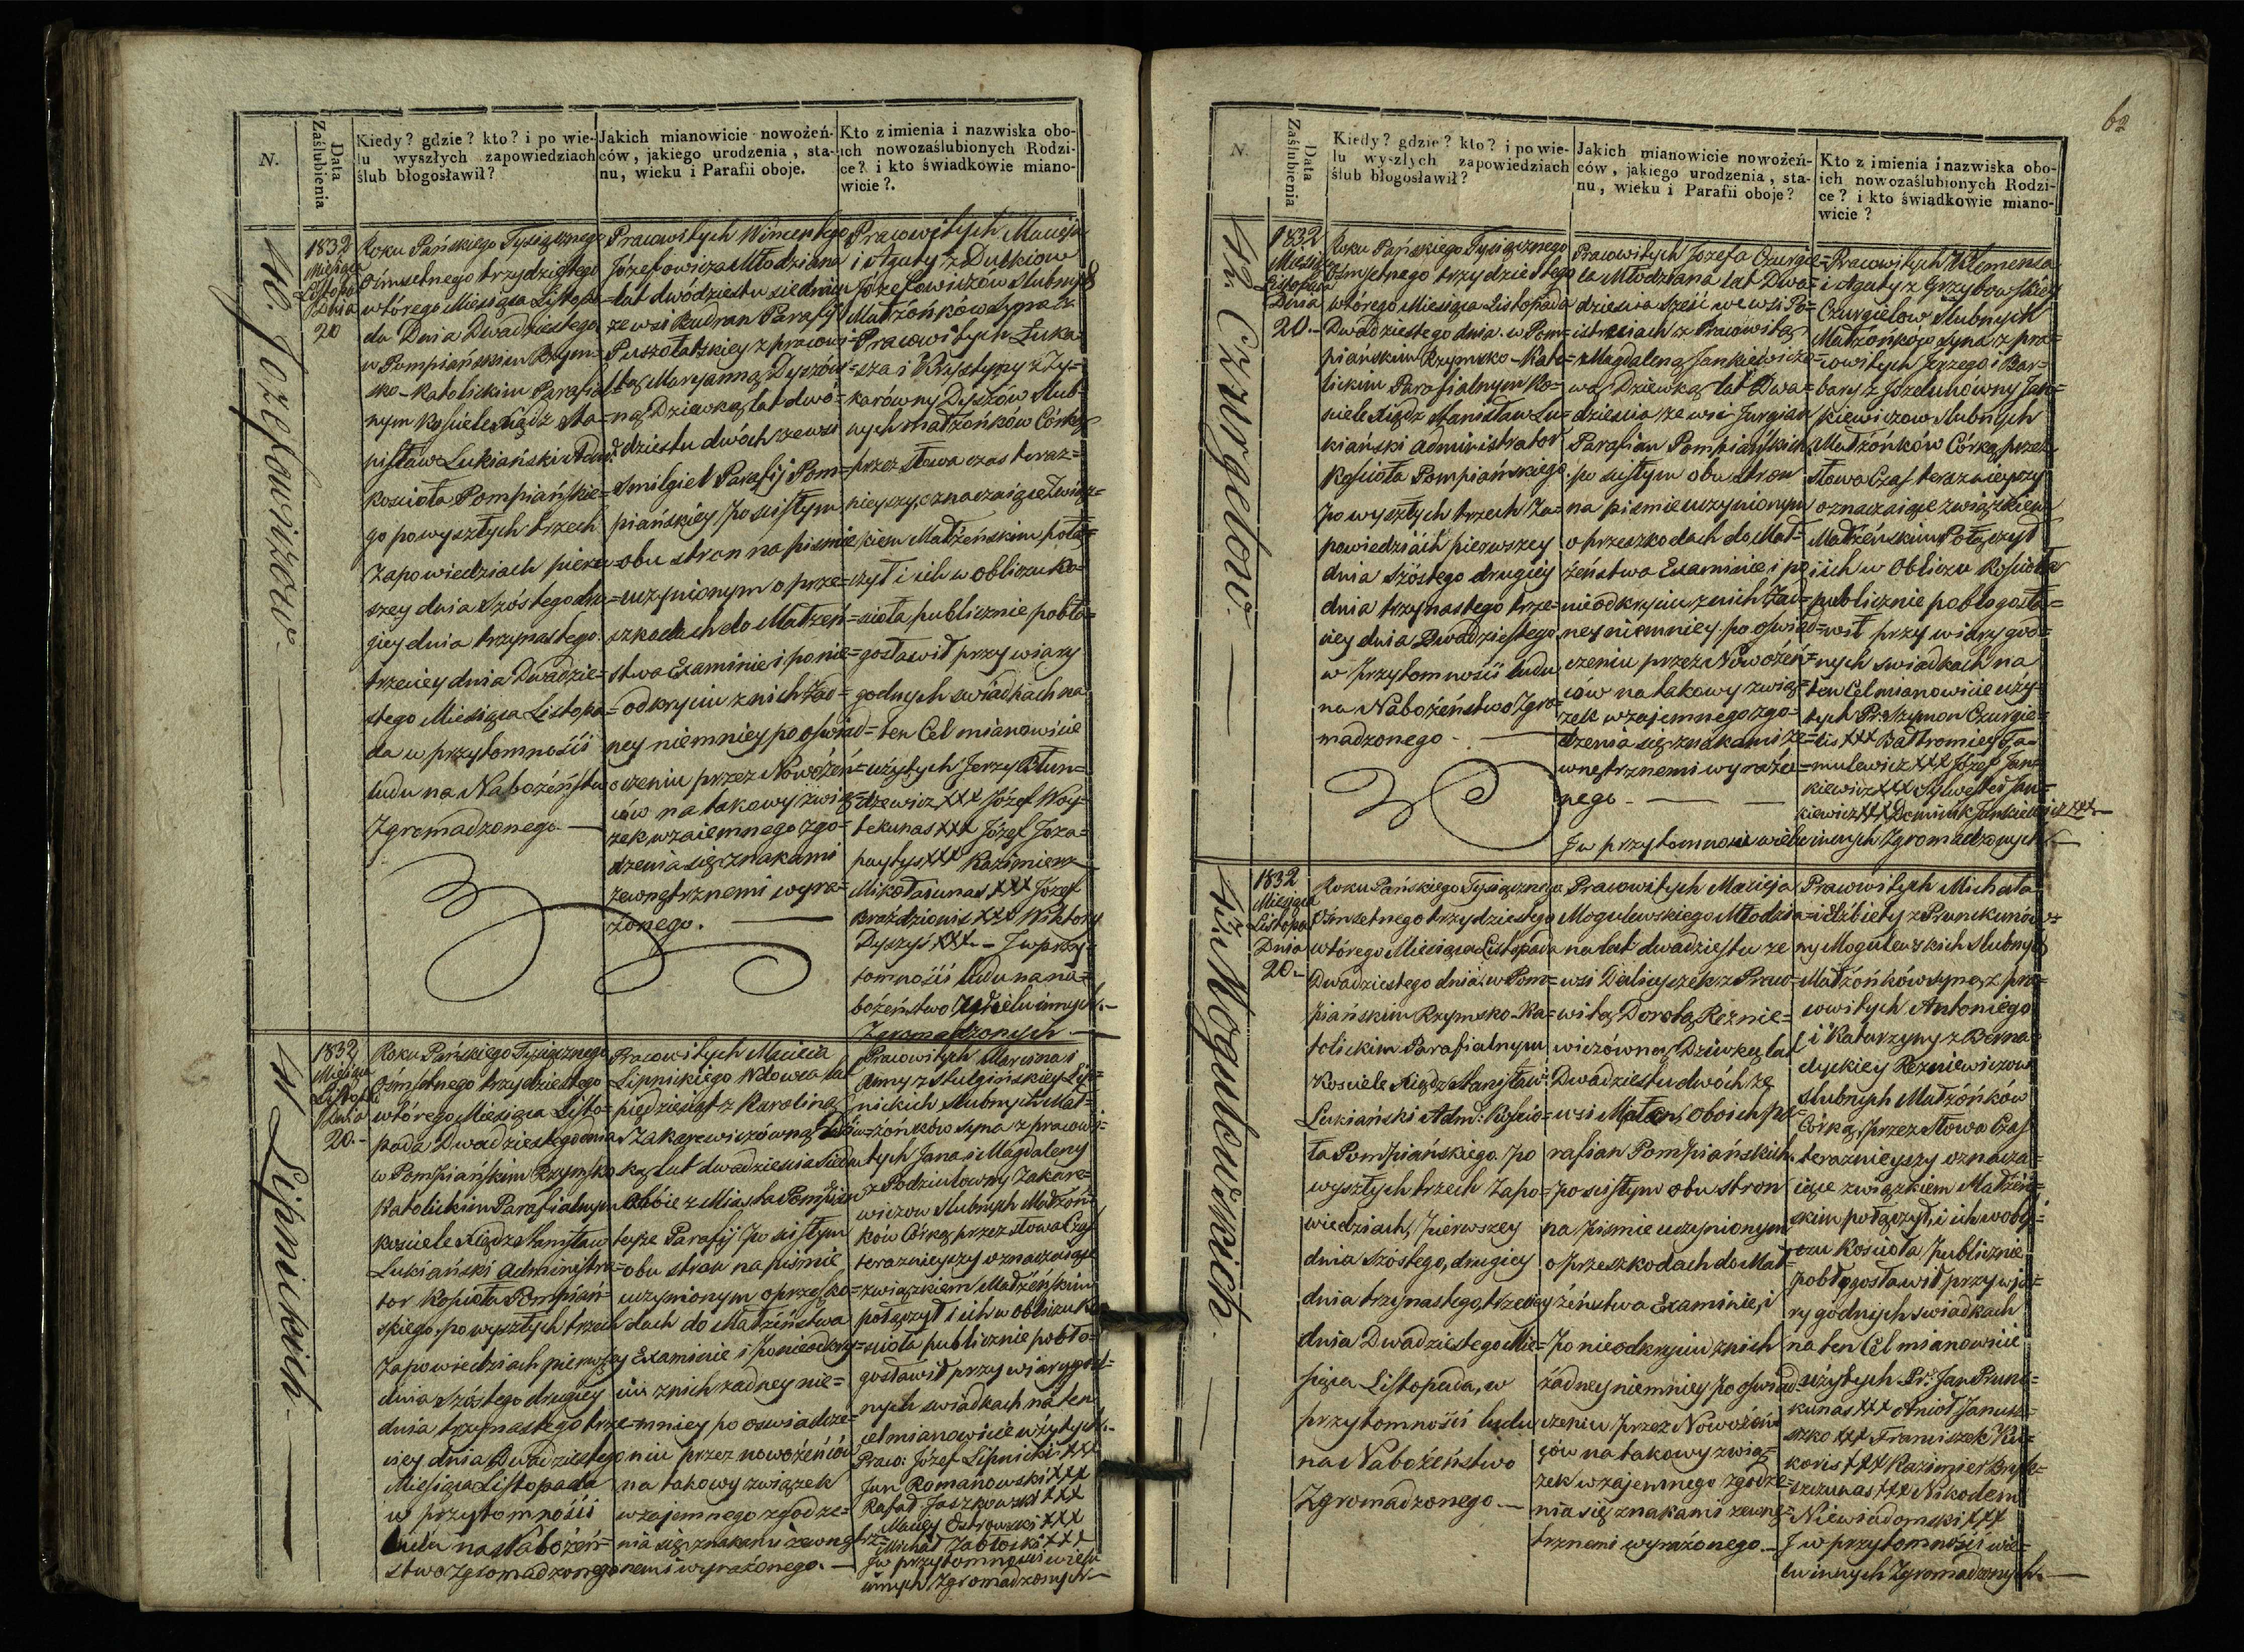 N.
Data Zaślubienia
Kiedy? gdzie? kto? i po wie-
lu wyszłych zapowiedziach
ślub błogosławił?
Jakich mianowicie nowożeń-
ców, jakiego urodzenia, sta-
nu, wieku i Parafii oboje.
Kto z imienia i nazwiska obo-
ich nowozaślubionych Rodzi-
ce? i kto świadkowie miano-
wicie?.
40. Jozefowiczow.
1832
Miesiąca
Listopa
Dnia
20
Roku Pańskiego Tysiącznego
Ośmsetnego trzydziestego
wtórego Miesiąca Listopa=
da Dnia Dwadziestego
w Pompiańskim Rzym=
sko-Katolickim Parafial=
nym Kościele Xiądz Sta=
nisław Lukiański Adm:
Kościoła Pompiańskie=
go po wyszłych trzech
Zapowiedziach pierw=
szey dnia Szóstego dru=
giey dnia trzynastego
trzeciey dnia Dwadzie=
stego Miesiąca Listopa=
da w przytomności
ludu na Nabożeństwo
Zgromadzonego.
Pracowitych Wincentego
Józefowicza Młodziana
lat dwódziestu siedmiu
ze wsi Kudran Parafij
Puszołatskiey z pracowi=
tą Maryanną Dyszów=
ną Dziewką lat dwó=
dziestu dwóch ze wsi
Smilgiel Parafij Pom=
piańskiey po scisłym
obu stron na pismie
uczynionym o prze=
szkodach do Małżeń=
stwa Examinie i po nie=
odkryciu z nich Żad=
ney niemniey po oświad=
czeniu przez Nowożeń=
ców na takowy zwią=
zek wzaiemnego zgo=
dzenia się znakami
zewnętrznemi wyra=
żonego.
Pracowitych Macieja
i Agaty z Dulkiow
Józefowiczów Slubnych
Małżonków Syna z
Pracowitych Łuka=
sza i Krystyny z Ży=
karówny Dyszów Slub=
nych małżonków Córką
przez słowa czas teraz=
nieyszy oznaczaiące Związ=
kiem Małżeńskim połą=
czył i ich w obliczu Ko=
ścioła publicznie pobło=
gosławił przy wiary
godnych swiadkach na
ten Cel mianowicie
użytych Jerzy Blun=
dzewicz XXX Józef Woy=
tekunas XXX Józef Joza=
paytys XXX Kazimierz
Mikołaiunas XXX Józef
Braździonis XXX Wiktory
Dyszys XXX. – I w przy=
tomności ludu na na=
bożeństwo wielu innych
Zgromadzonych
41. Lipnickich.
1832
Miesiąca
Listopa
Dnia
20.
Roku Pańskiego Tysiącznego
Ośmsetnego trzydziestego
wtórego Miesiąca Listo=
pada Dwadziestego dnia
w Pompiańskim Rzymsko
Katolickim Parafialnym
Kościele Xiądz Stanisław
Lukiański Administra=
tor Kościoła Pompiań=
skiego po wyszłych trzech
Zapowiedziach pierwszey
dnia Szóstego drugiey
dnia trzynastego trze=
ciey dnia Dwadziestego
Miesiąca Listopada
w przytomności
ludu na Nabożeń=
stwo Zgromadzonego
Pracowitych Macieia
Lipnickiego Wdowca lat
pięćdziesiąt z Karoliną
Zakarewiczówną Dziew=
ką lat dwadziescia siedm
obóie z Miasta Pompian
teyże Parafij po scisłym
obu stron na pismie
uczynionym o przeszko=
dach do Małżeństwa
Examinie i po nieodkry=
ciu z nich żadney nie=
mniey po oswiadcze=
niu przez nowożeńców
na takowy związek
wzajemnego zgodze=
nia się znakami zewnętrz=
nemi wyrażonego.
Pracowitych Marcina i
Anny z Stulgińskiey Lip=
nickich Slubnych Mał=
żonków Syna z pracowi=
tych Jana i Magdaleny
z Podziulowny Zakare=
wiczow Slubnych Małżon=
ków Córką przez słowa Czas
teraznieyszy oznaczaiące
związkiem Małżeńskim
połączył i ich w obliczu Ko=
scioła publicznie pobło=
gosławił przy wiary god=
nych swiadkach na ten
cel mianowicie użytych
Praco: Józef Lipnicki XXX
Jan Romanowski XXX
Rafał Jaszkowski XXX
Maciey Ostrowski XXX
Michał Zabłocki XXX
I w przytomności wielu
innych Zgromadzonych
62
N.
Data Zaślubienia
Kiedy? gdzie? kto? i po wie-
lu wyszłych zapowiedziach
ślub błogosławił?
Jakich mianowicie nowożeń-
ców, jakiego urodzenia, sta-
nu, wieku i Parafii oboje?
Kto z imienia i nazwiska obo-
ich nowozaślubionych Rodzi-
ce? i kto świadkowie miano-
wicie?
42. Czurgelow.
1832
Miesiąca
Listopada
Dnia
20.
Roku Pańskiego Tysiącznego
Ośmsetnego trzydziestego
wtórego Miesiąca Listopada
Dwadziestego dnia w Pom=
piańskim Rzymsko-Kato=
lickim Parafialnym Ko=
sciele Xiądz Stanisław Lu=
kiański administrator
Kościoła Pompiańskiego
po wyszłych trzech Za=
powiedziach pierwszey
dnia Szóstego drugiey
dnia trzynastego trze=
ciey dnia Dwadziestego
w przytomności ludu
na Nabożeństwo Zgro=
madzonego.
Pracowitych Jozefa Czurgie=
la Młodziana lat Dwa=
dziescia sześć we wsi Po=
istrzeciach z Pracowitą
Magdaleną Jankiewiczo=
wą Dziewką lat Dwa=
dziescia ze wsi Jurgian
Parafian Pompiańskich
po scisłym obu stron
na pismie uczynionym
o przeszkodach do Mał=
żeństwa Examinie i po
nieodkryciu z nich Żad=
ney niemniey po oświad=
czeniu przez Nowożeń=
ców na takowy zwią=
zek wzajemnego zgo=
dzenia się znakami ze=
wnętrznemi wyrażo=
nego.
Pracowitych Klemensa
i Agaty z Grzybowskiey
Czurgielow Slubnych
Małżonków Syna z pra=
cowitych Jerzego i Bar=
bary z Jozelunowny Jan=
kiewiczow Slubnych
Małżonków Córką przez
słowa Czas teraznieyszy
oznaczaiące związkiem
Małżeńskim Połączył
i ich w Obliczu Kościoła
publicznie pobłogosła=
wił przy wiary god=
nych swiadkach na
ten Cel mianowicie uży=
tych Pr: Szymon Czurgie=
lis XXX Bałtromiey Ta=
mulewicz XXX Józef Jan=
kiewicz XXX Sylwester Jan=
kiewicz XXX Dominik Jankiewicz XXX
I w przytomności wielu innych Zgromadzonych
43. Mogulewskich.
1832
Miesiąca
Listopa
Dnia
20.
Roku Pańskiego Tysiącznego
Ośmsetnego trzydziestego
wtórego Miesiąca Listopada
Dwadziestego dnia w Pom=
piańskim Rzymsko-Ka=
tolickim Parafialnym
Kosciele Xiądz Stanisław
Lukiański Adm: Koscio=
ła Pompiańskiego po
wyszłych trzech Zapo=
wiedziach, pierwszey
dnia Szóstego, drugiey
dnia trzynastego, trzeciey
dnia Dwadziestego Mie=
siąca Listopada, w
przytomności ludu
na Nabożeństwo
Zgromadzonego.
Pracowitych Macieja
Mogulewskiego Młodzia=
na lat dwadziestu ze
wsi Daliuszek z Praco=
witą Dorotą Reznie=
wiczówną Dziewką lat
Dwadziestu dwóch ze
wsi Mołan oboich pa=
rafian Pompiańskich
po scisłym obu stron
na pismie uczynionym
o przeszkodach do Mał=
żeństwa Examinie, i
po nieodkryciu z nich
żadney niemniey po oswiad=
czeniu przez Nowożeń=
ców na takowy zwią=
zek wzajemnego zgodze=
nia się znakami zewnę=
trznemi wyrażonego.
Pracowitych Michała
i Elżbiety z Prunckunów=
ny Mogulewskich Slubnych
Małżonków Syna z pra=
cowitych Antoniego
i Katarzyny z Berna=
dyckiey Rezniewiczow
Slubnych Małżonków
Córką przez słowa Czas
teraznieyszy oznacza=
iące związkiem Małżeń=
skim połączył, i ich w obli=
czu Kosciola publicznie
pobłogosławił przy wia=
ry godnych swiadkach
na ten Cel mianowicie
użytych Pr: Jan Prunc=
kunas XXX Anioł Janusz=
szko XXX Franciszek Ku=
koris XXX Kazimierz Bruk=
szczunas XXX Nikodem
Niewiadomski XXX
I w przytomności wie=
lu innych Zgromadzonych.